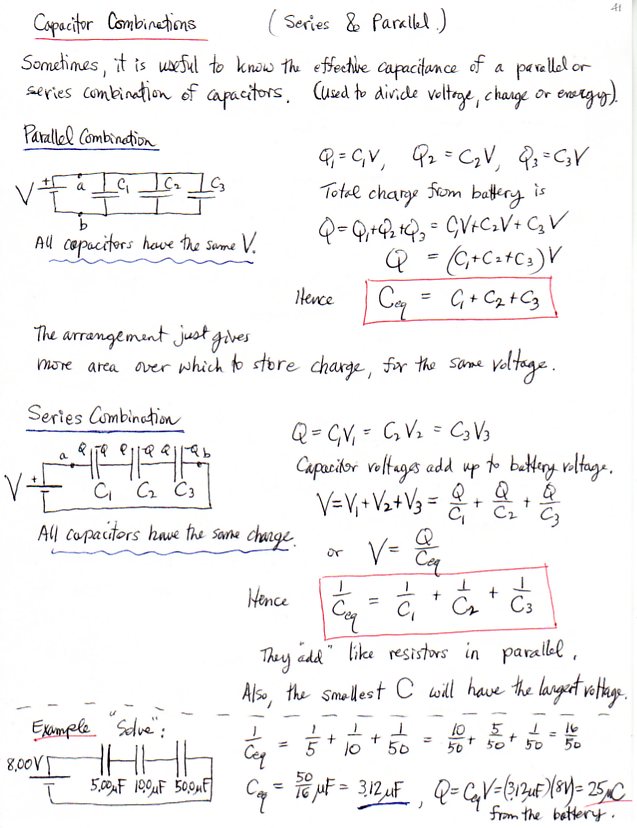 41
Capacitor Combinations (Series & Parallel.)
Sometimes, it is useful to know the effective capacitance of a parallel or
series combination of capacitors. (Used to divide voltage, charge or energy).
Parallel Combination
Q₁ = C₁V, Q₂ = C₂V, Q₃ = C₃V
V + a C₁ C₂ C₃
b
Total charge from battery is
Q = Q₁+Q₂+Q₃ = C₁V+C₂V+C₃V
All capacitors have the same V.
Q = (C₁+C₂+C₃)V
Hence Ceq = C₁+C₂+C₃
The arrangement just gives
more area over which to store charge, for the same voltage.
Series Combination
Q = C₁V₁ = C₂V₂ = C₃V₃
a Q -Q Q -Q Q -Q b
V + C₁ C₂ C₃
Capacitor voltages add up to battery voltage.
V = V₁+V₂+V₃ = Q/C₁ + Q/C₂ + Q/C₃
All capacitors have the same charge.
or V = Q/Ceq
Hence 1/Ceq = 1/C₁ + 1/C₂ + 1/C₃
They "add" like resistors in parallel.
Also, the smallest C will have the largest voltage.
Example "Solve":
8.00V 5.00μF 10.0μF 50.0μF
1/Ceq = 1/5 + 1/10 + 1/50 = 10/50 + 5/50 + 1/50 = 16/50
Ceq = 50/16 μF = 3.12μF, Q = CeqV = (3.12μF)(8V) = 25μC
from the battery.